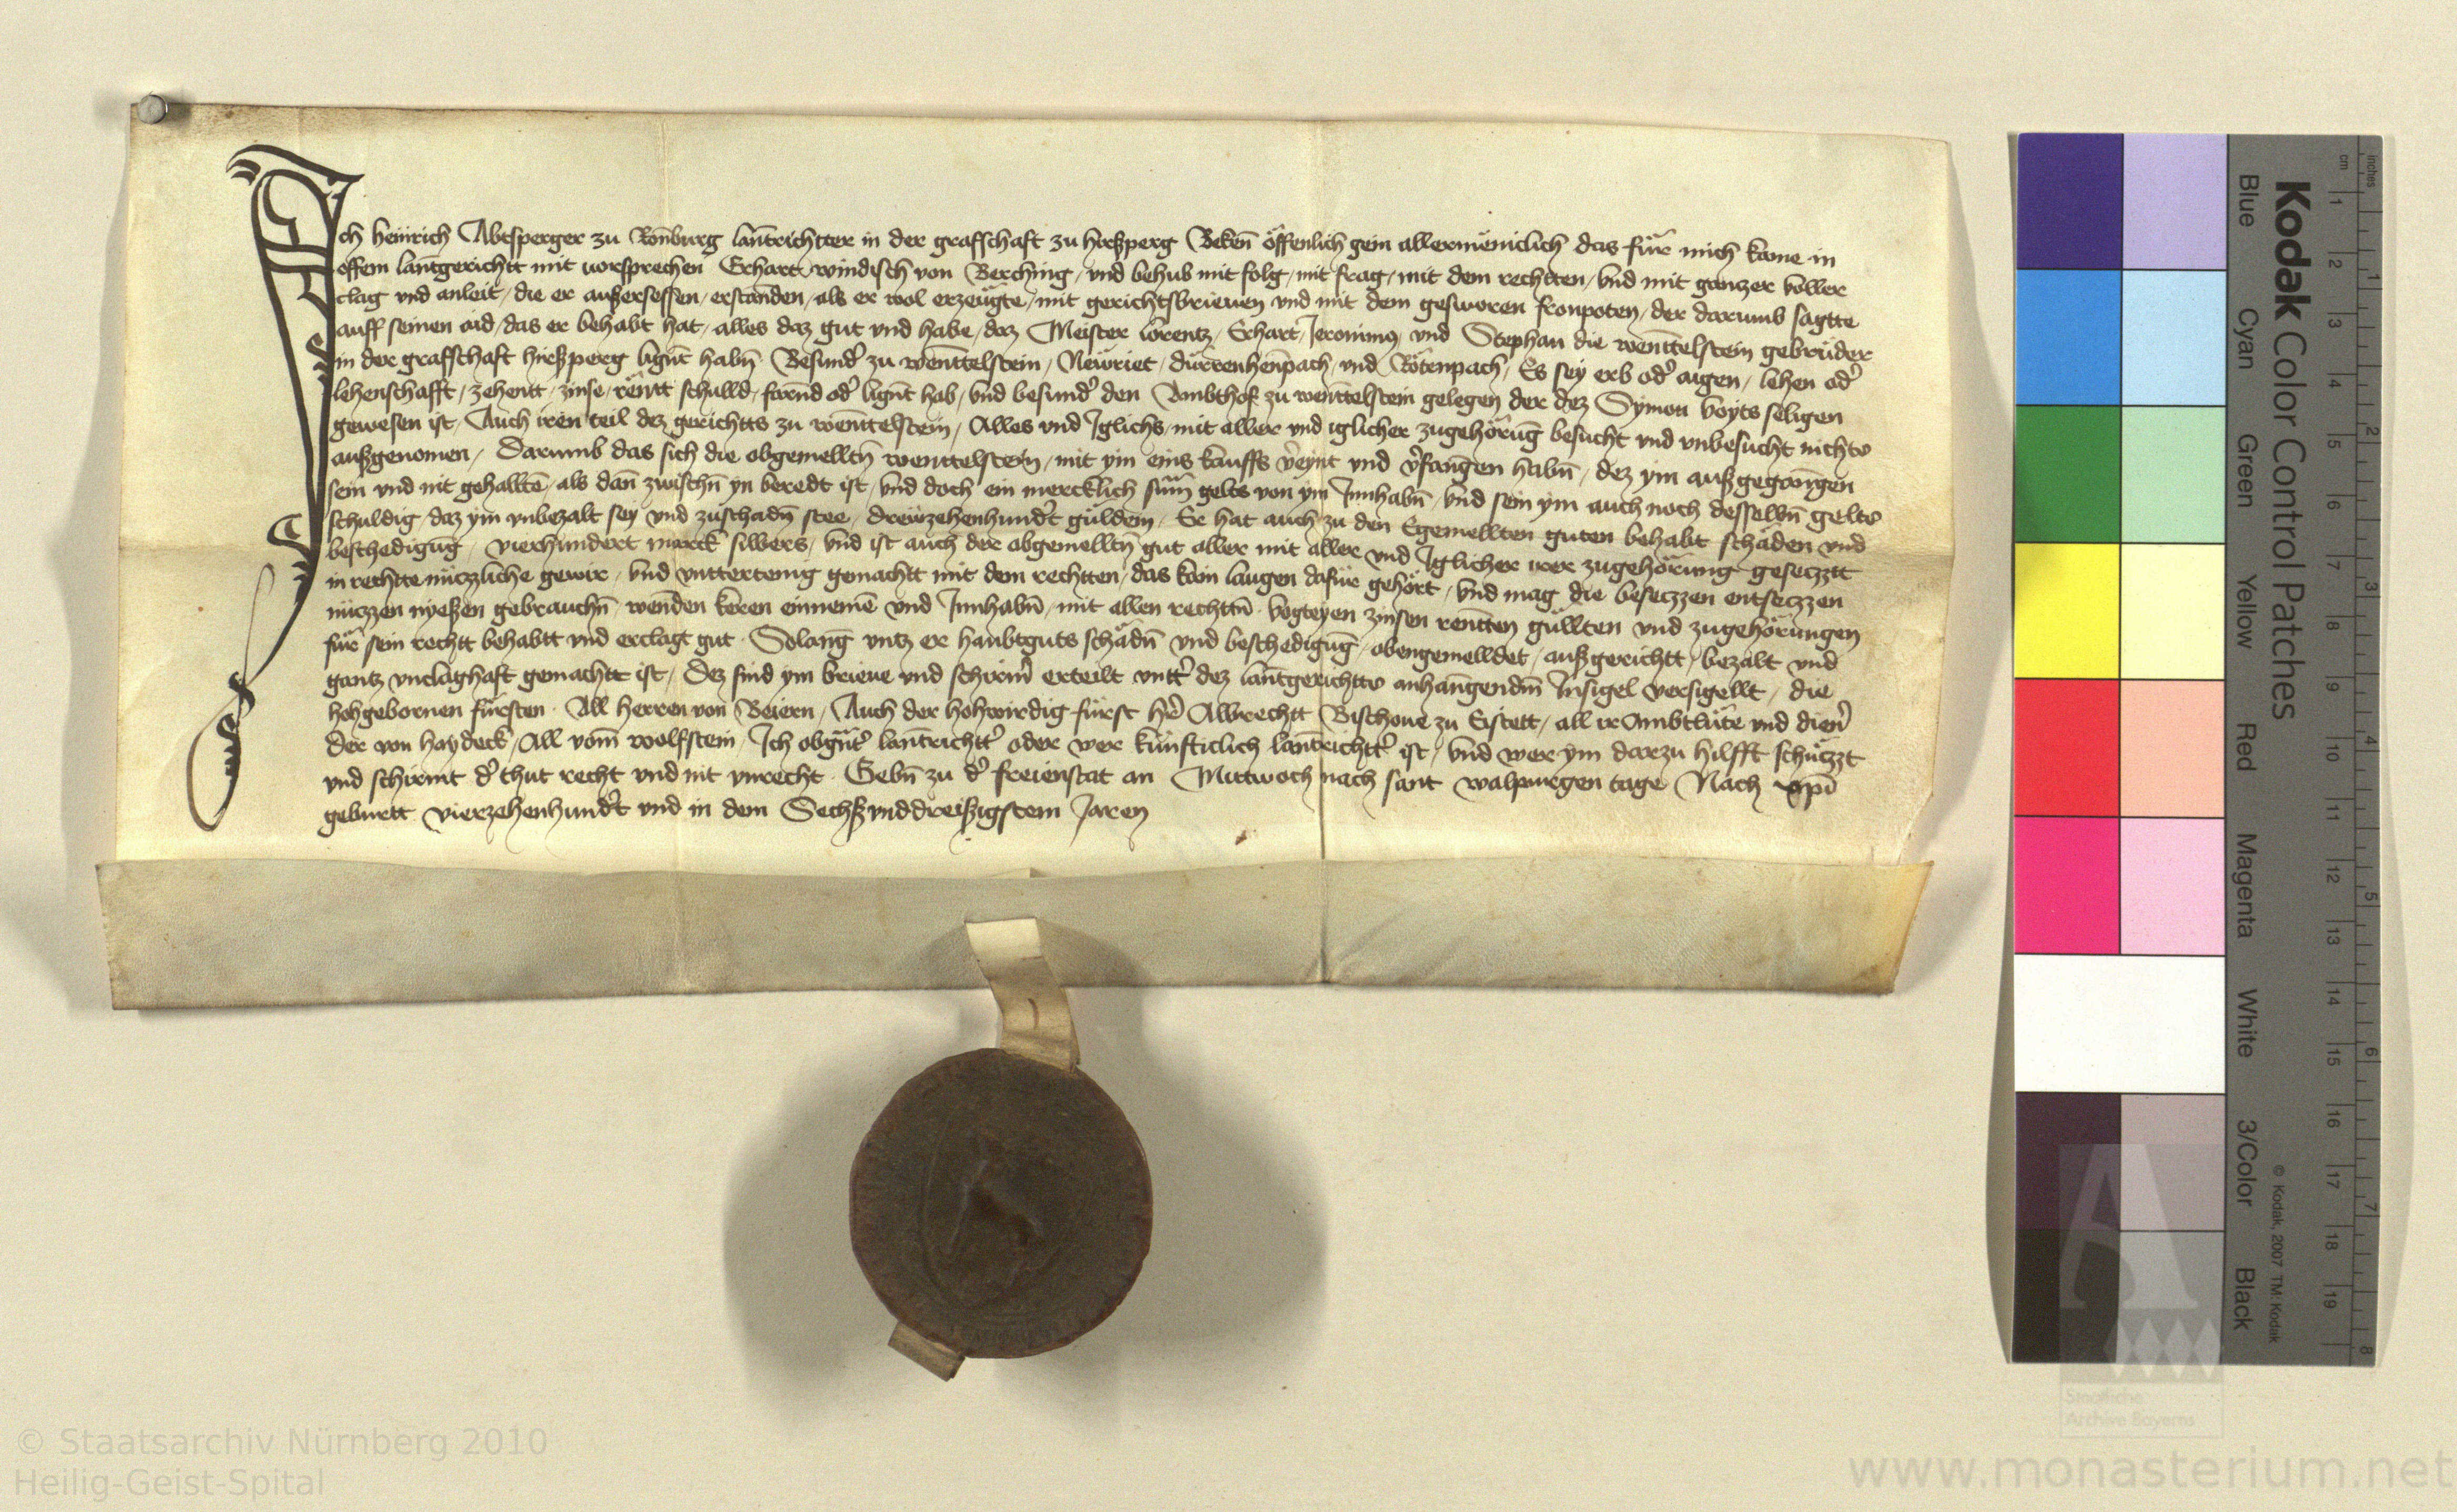 Ich heinrich Abtsperger zu Ronburg lantrichtter in der graffschaft zu hirßperg Beken offenlich gein allermeniclich das für mich kame in
offem lantgerichtt mit vorsprechen Erhart windisch von Berching / vnd behub mit folg / mit frag / mit dem rechtten / vnd mit ganczer voller
clag vnd anleit / die er außersessen / erstanden / als er wol erzeugte / mit gerichtsbrieuen vnd mit dem gesworen fronpoten / der darumb sagtte
auff seinen aid / das er behabt hat / alles daz gut vnd habe / daz Meister lorentz / Erhart / Jeronimus vnd Stephan die wenttelstein gebrüder
in der graffschaft hirßperg ligūt habn̄ Besund' zu wenttelstein / Newriet / dürrenhenpach / vnd Rötenpach / Es sey erb od' aigen / lehen od'
lehenschafft / zehentt / zinse / rentt schulld / farnd od' ligūt hab / vnd besund' den Ambthof zu wenttelstein gelegen der dez Symon voyts seligen
gewesen ist / Auch iren teil dez gerichtts zu wenttelstein / Alles vnd Jglichs / mit aller vnd iglicher zugehörūg besucht vnd vnbesucht nichts
außgenomen / Darumb das sich die obgemelltn̄ wenttelstein / mit ym eins kauffs v'eynt vnd v'fangen habn̄ / dez ym außgegangen
sein vnd nit gehalltē / als dan̄ zwischn̄ yn beredt ist / vnd doch ein mercklich sum̄ gelts von ym Jnnhabn̄ / vnd sein ym auch noch desselbn̄ gelts
schuldig / daz ym vnbezalt sey vnd zuschadn̄ stee / dreüzehenhund't guldein / Er hat auch zu den Egemellten guten behabt schäden vnd
beschedigūg / vierhundert marck silbers / vnd ist auch der obgemelltn̄ gut aller mit aller vnd Jglicher irer zugehörung geseczzt
in rechtte nüczliche gewer / vnd vnttertenig gemachtt mit dem rechtten / das kain laugen dafür gehört / vnd mag die beseczzen entseczzen
nüczzen nyeßen gebrauchn̄ / wenden keren einnemē vnd Jnnhabn̄ / mit allen rechttn̄ / vogteyen zinsen rentten güllten vnd zugehörungen
für sein rechtt behabtt vnd erclagt gut / Solang vntz er haubtguts schädn̄ vnd beschedigūg / obengemelldet / außgerichtt / bezalt vnd
gantz vnclaghaft gemachtt ist / Dez sind ym brieue vnd schirm̄ erteilt vntt' dez lantgerichtts anhangendm̄ Jnsigel versigellt / die
hohgebornen fürsten / All herren von Beiern / Auch der hohwirdig fürst h'r Albrechtt Bischoue zu Eistett / all ir Ambtlüte vnd dien'
der von haydeck / All vom wolfstein / Jch obgn̄t' lantrichtt' oder wer künfticlich lantrichtt' ist / vnd wer ym darzu hilfft schüczzt
vnd schirmt d' thut recht vnd nit vnrecht / Gebn̄ zu d' freienstat an Mittwoch nach sant walpurgen tage Nach xpī
geburtt vierzehenhund't vnd in dem Sechßvnddreißigstem Jaren
Kodak Color Control Patches
Blue
Cyan
Green
Yellow
Red
Magenta
White
3/Color
Black
© Kodak, 2007 TM: Kodak
cm
1
2
3
4
5
6
7
8
9
10
11
12
13
14
15
16
17
18
19
inches
1
2
3
4
5
6
7
8
Staatliche
Archive Bayerns
© Staatsarchiv Nürnberg 2010
Heilig-Geist-Spital
www.monasterium.net